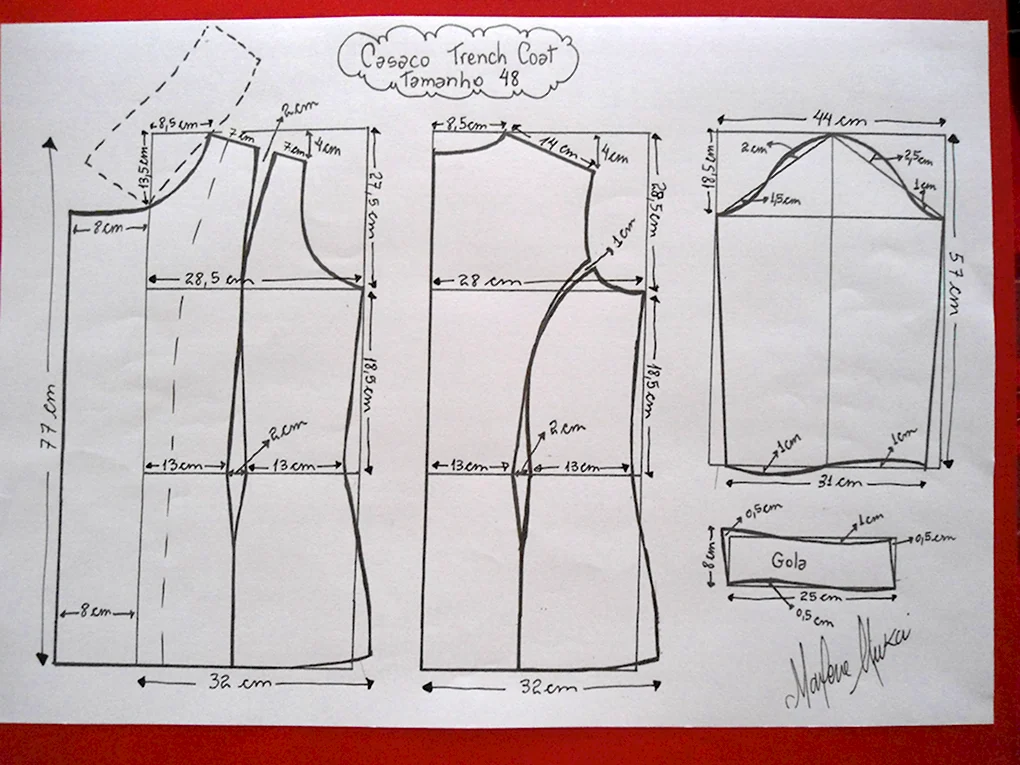 Casaco Trench Coat
Tamanho 48
8,5 cm
7 cm
2 cm
7 cm
4 cm
13,5 cm
27,5 cm
8 cm
28,5 cm
18,5 cm
77 cm
2 cm
13 cm
13 cm
8 cm
32 cm
8,5 cm
14 cm
4 cm
28,5 cm
1 cm
28 cm
18,5 cm
2 cm
13 cm
13 cm
32 cm
44 cm
18,5 cm
2 cm
2,5 cm
1 cm
1,5 cm
57 cm
1 cm
1 cm
31 cm
0,5 cm
1 cm
0,5 cm
8 cm
Gola
25 cm
0,5 cm
Marlene Mukai